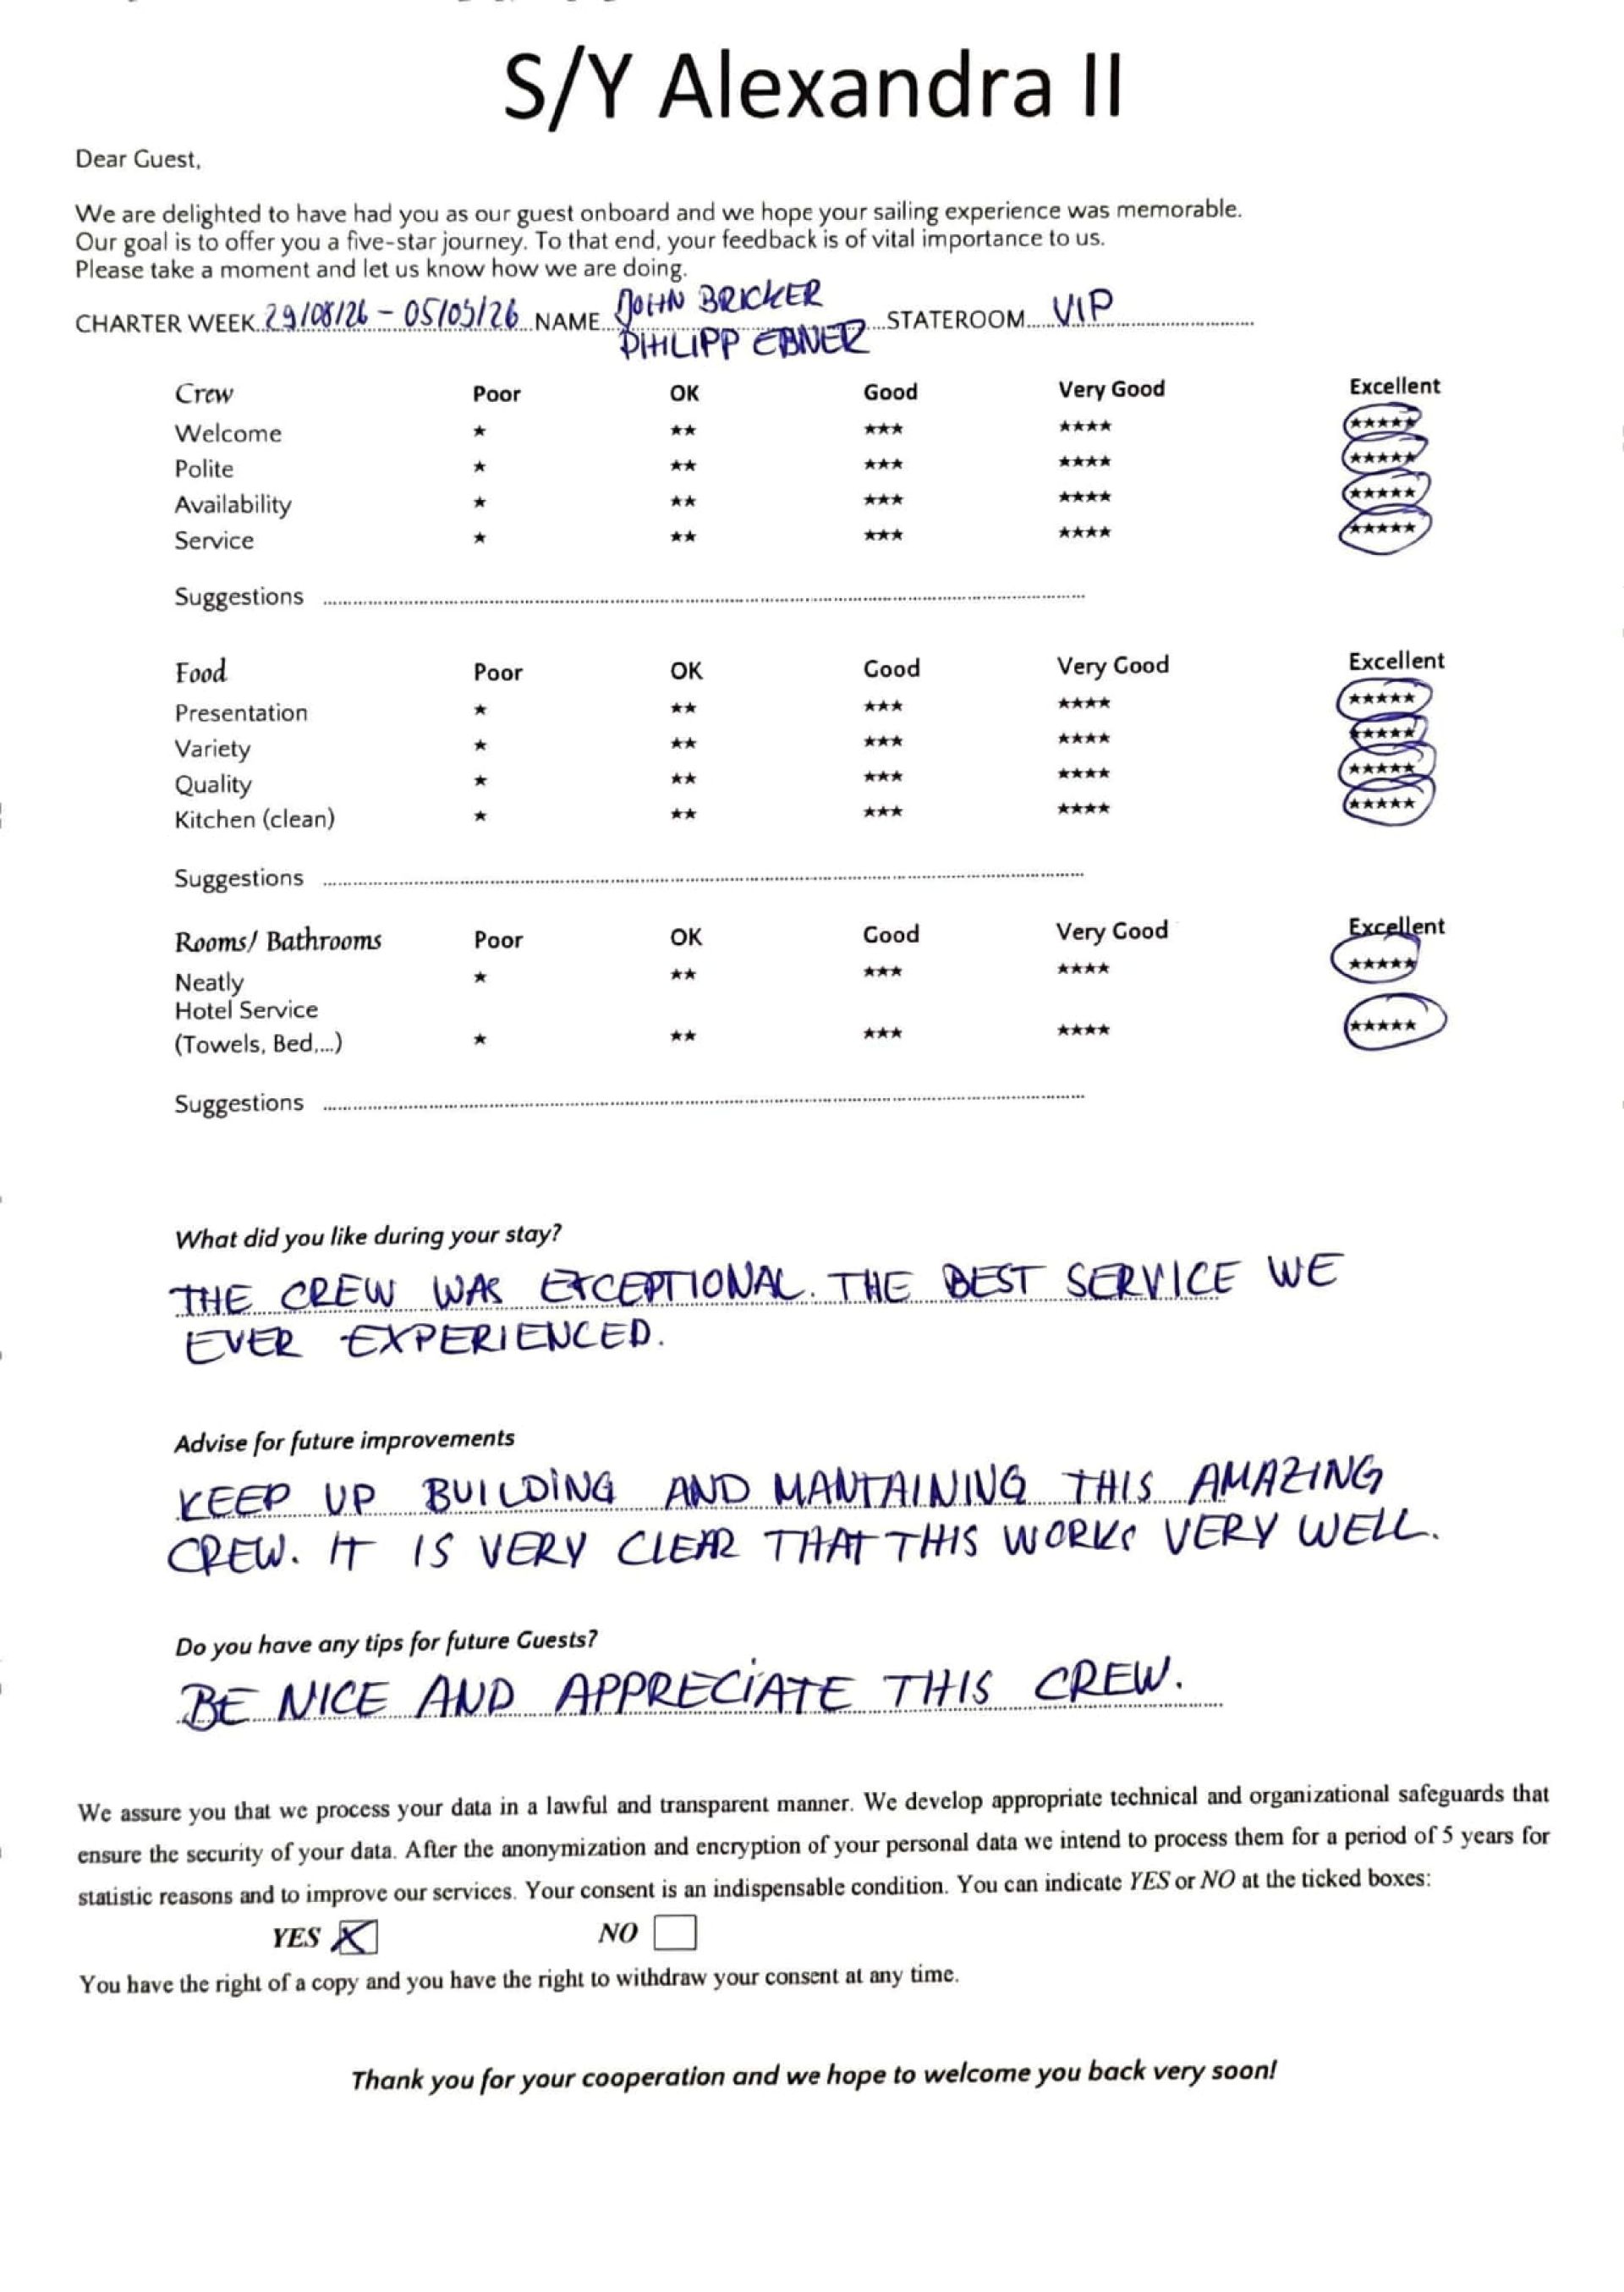 S/Y Alexandra II
Dear Guest,
We are delighted to have had you as our guest onboard and we hope your sailing experience was memorable.
Our goal is to offer you a five-star journey. To that end, your feedback is of vital importance to us.
Please take a moment and let us know how we are doing.
CHARTER WEEK 29/08/26 - 05/09/26 NAME JOHN BRICKER STATEROOM VIP
PHILIPP EBNER
Crew Poor OK Good Very Good Excellent
Welcome ★ ★★ ★★★ ★★★★ ★★★★★
Polite ★ ★★ ★★★ ★★★★ ★★★★★
Availability ★ ★★ ★★★ ★★★★ ★★★★★
Service ★ ★★ ★★★ ★★★★ ★★★★★
Suggestions
Food Poor OK Good Very Good Excellent
Presentation ★ ★★ ★★★ ★★★★ ★★★★★
Variety ★ ★★ ★★★ ★★★★ ★★★★★
Quality ★ ★★ ★★★ ★★★★ ★★★★★
Kitchen (clean) ★ ★★ ★★★ ★★★★ ★★★★★
Suggestions
Rooms/ Bathrooms Poor OK Good Very Good Excellent
Neatly ★ ★★ ★★★ ★★★★ ★★★★★
Hotel Service
(Towels, Bed,...) ★ ★★ ★★★ ★★★★ ★★★★★
Suggestions
What did you like during your stay?
THE CREW WAS EXCEPTIONAL. THE BEST SERVICE WE
EVER EXPERIENCED.
Advise for future improvements
KEEP UP BUILDING AND MANTAINING THIS AMAZING
CREW. IT IS VERY CLEAR THAT THIS WORKS VERY WELL.
Do you have any tips for future Guests?
BE NICE AND APPRECIATE THIS CREW.
We assure you that we process your data in a lawful and transparent manner. We develop appropriate technical and organizational safeguards that
ensure the security of your data. After the anonymization and encryption of your personal data we intend to process them for a period of 5 years for
statistic reasons and to improve our services. Your consent is an indispensable condition. You can indicate YES or NO at the ticked boxes:
YES X NO
You have the right of a copy and you have the right to withdraw your consent at any time.
Thank you for your cooperation and we hope to welcome you back very soon!